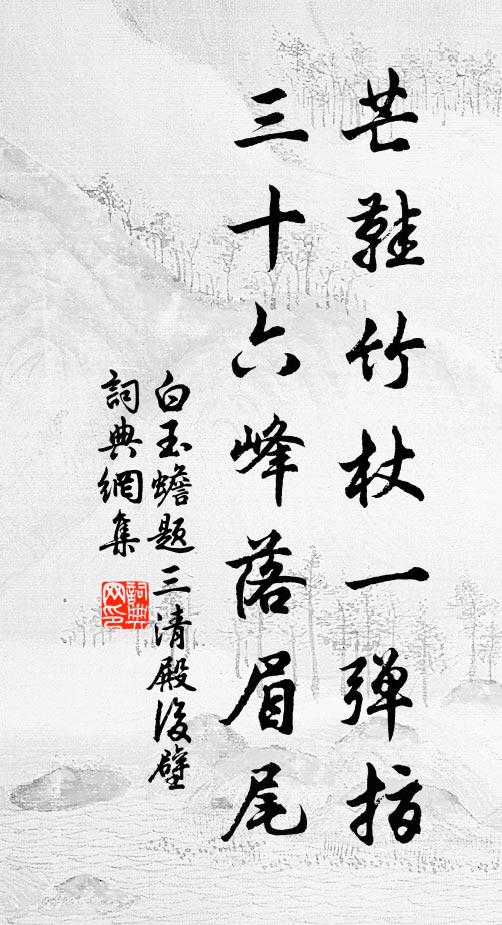 芒鞋竹杖一弹指
三十六峰落眉尾
白玉蟾题三清殿後壁
詞典網集
詞典網印